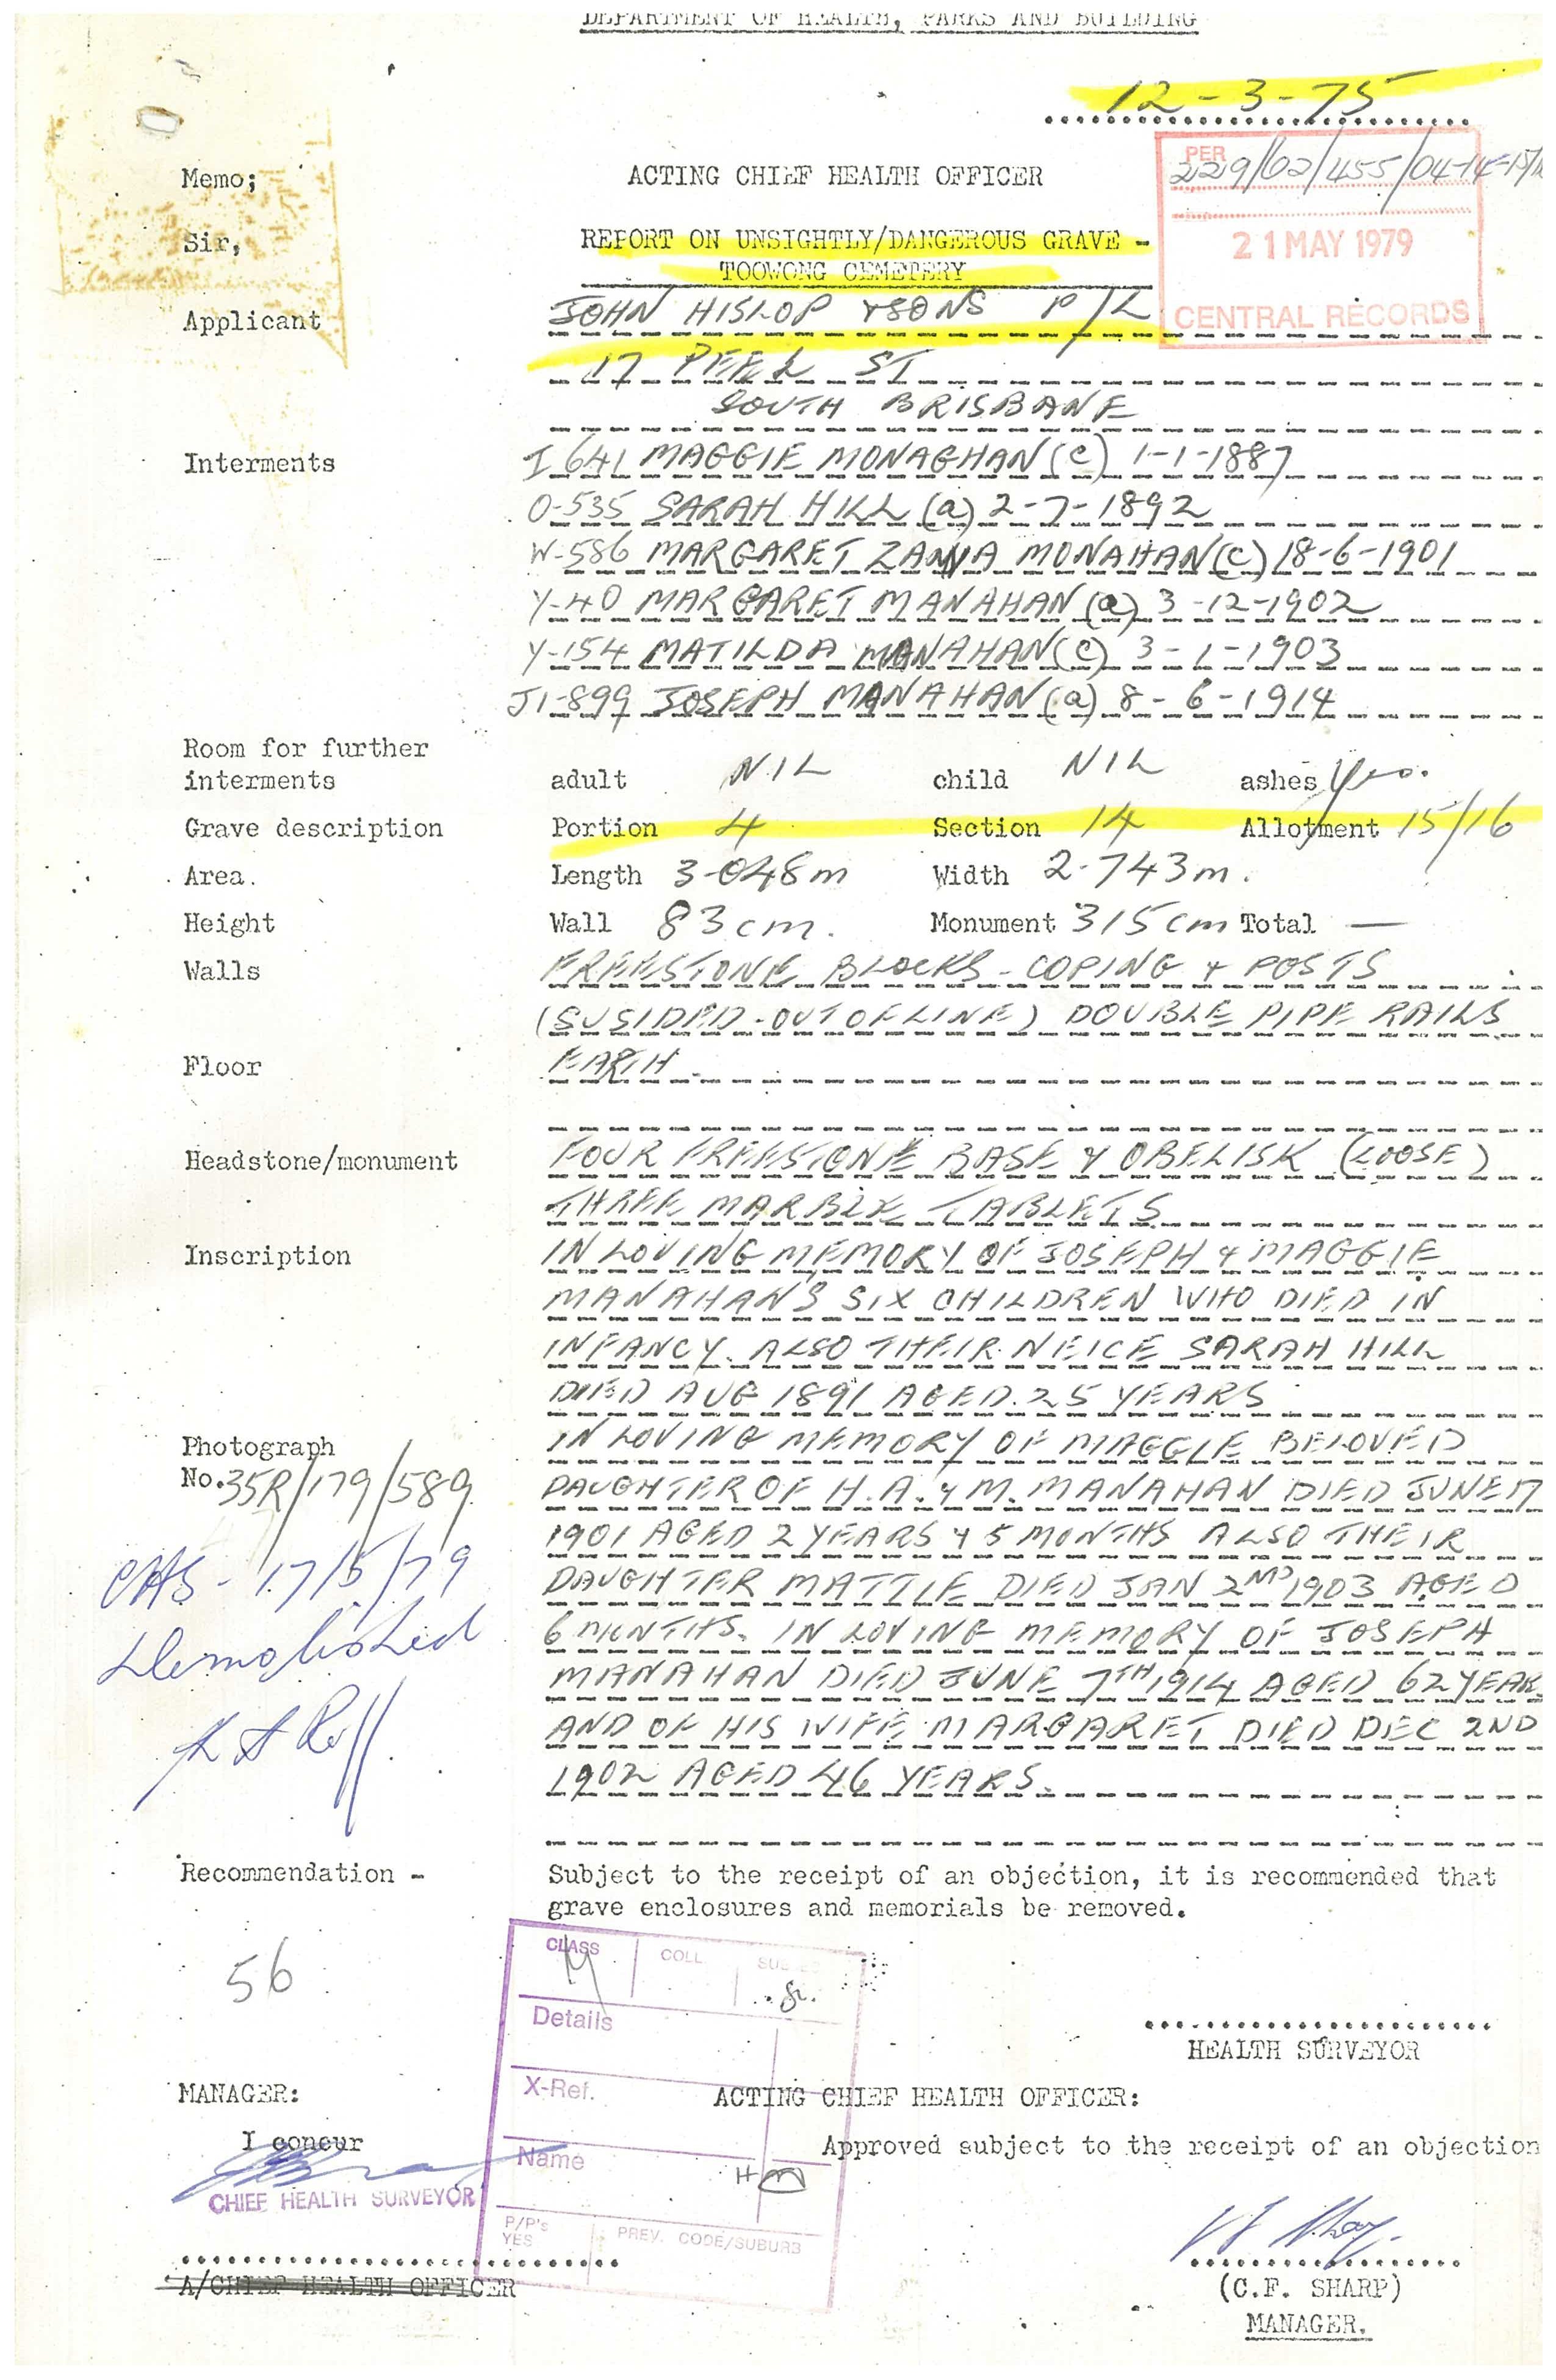 DEPARTMENT OF HEALTH, PARKS AND BUILDING
12-3-75
PER
229/02/455/04-14-15/
21 MAY 1979
CENTRAL RECORDS
Memo;
ACTING CHIEF HEALTH OFFICER
Sir,
REPORT ON UNSIGHTLY/DANGEROUS GRAVE -
TOOWONG CEMETERY
Applicant JOHN HISLOP & SONS P/L
17 PEEL ST
SOUTH BRISBANE
Interments I 641 MAGGIE MONAGHAN (c) 1-1-1887
O-535 SARAH HILL (a) 2-7-1892
W-586 MARGARET ZANNA MONAHAN (C) 18-6-1901
Y-40 MARGARET MANAHAN (a) 3-12-1902
Y-154 MATILDA MANAHAN (C) 3-1-1903
J1-899 JOSEPH MANAHAN (a) 8-6-1914
Room for further
interments adult NIL child NIL ashes Yes.
Grave description Portion 4 Section 14 Allotment 15/16
Area. Length 3.048m Width 2.743m.
Height Wall 83cm. Monument 315cm Total —
Walls FREESTONE BLOCKS - COPING & POSTS
(SUSIDED - OUT OF LINE) DOUBLE PIPE RAILS
Floor EARTH
Headstone/monument FOUR FREESTONE BASE & OBELISK (LOOSE)
THREE MARBLE TABLETS
Inscription IN LOVING MEMORY OF JOSEPH & MAGGIE
MANAHANS SIX CHILDREN WHO DIED IN
INFANCY. ALSO THEIR NEICE SARAH HILL
DIED AUG 1891 AGED 25 YEARS
Photograph IN LOVING MEMORY OF MAGGIE BELOVED
No. 35R/179/589 DAUGHTER OF H.A. & M. MANAHAN DIED JUNE 17
1901 AGED 2 YEARS & 5 MONTHS ALSO THEIR
DAUGHTER MATTIE DIED JAN 2ND 1903 AGED
6 MONTHS. IN LOVING MEMORY OF JOSEPH
MANAHAN DIED JUNE 7TH 1914 AGED 62 YEAR
AND OF HIS WIFE MARGARET DIED DEC 2ND
1902 AGED 46 YEARS.
CHS - 17/5/79
Demolished
Recommendation - Subject to the receipt of an objection, it is recommended that
grave enclosures and memorials be removed.
56
CLASS COLL
Details
X-Ref.
Name
P/P's
YES
PREV. CODE/SUBURB
HEALTH SURVEYOR
MANAGER: ACTING CHIEF HEALTH OFFICER:
I concur Approved subject to the receipt of an objection
CHIEF HEALTH SURVEYOR
A/CHIEF HEALTH OFFICER
(C.F. SHARP)
MANAGER.